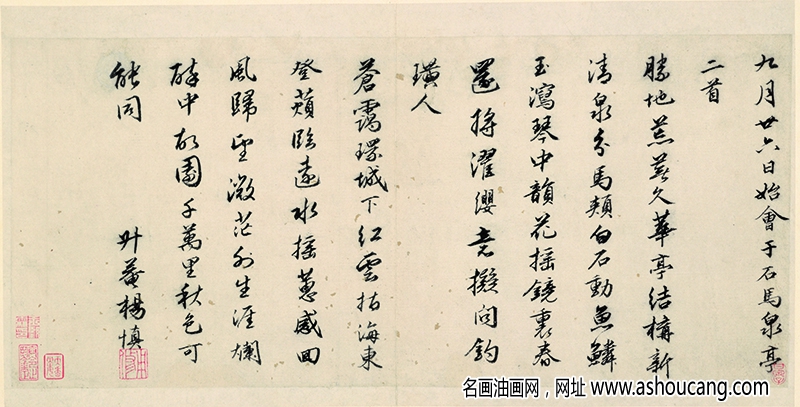 九月廿六日始會于石馬泉亭
二首
勝地荒蕪久華亭結構新
清泉分馬頰白石動魚鱗
玉瀉琴中韻花搖鏡裏春
還將濯纓意擬問釣
璜人
蒼靄環城下紅雲指海東
登蘋臨遠水搖蕙感回
風歸望微茫外生涯爛
醉中故園千萬里秋色可
能同
升菴楊慎
名画油画网，网址 www.ashoucang.com